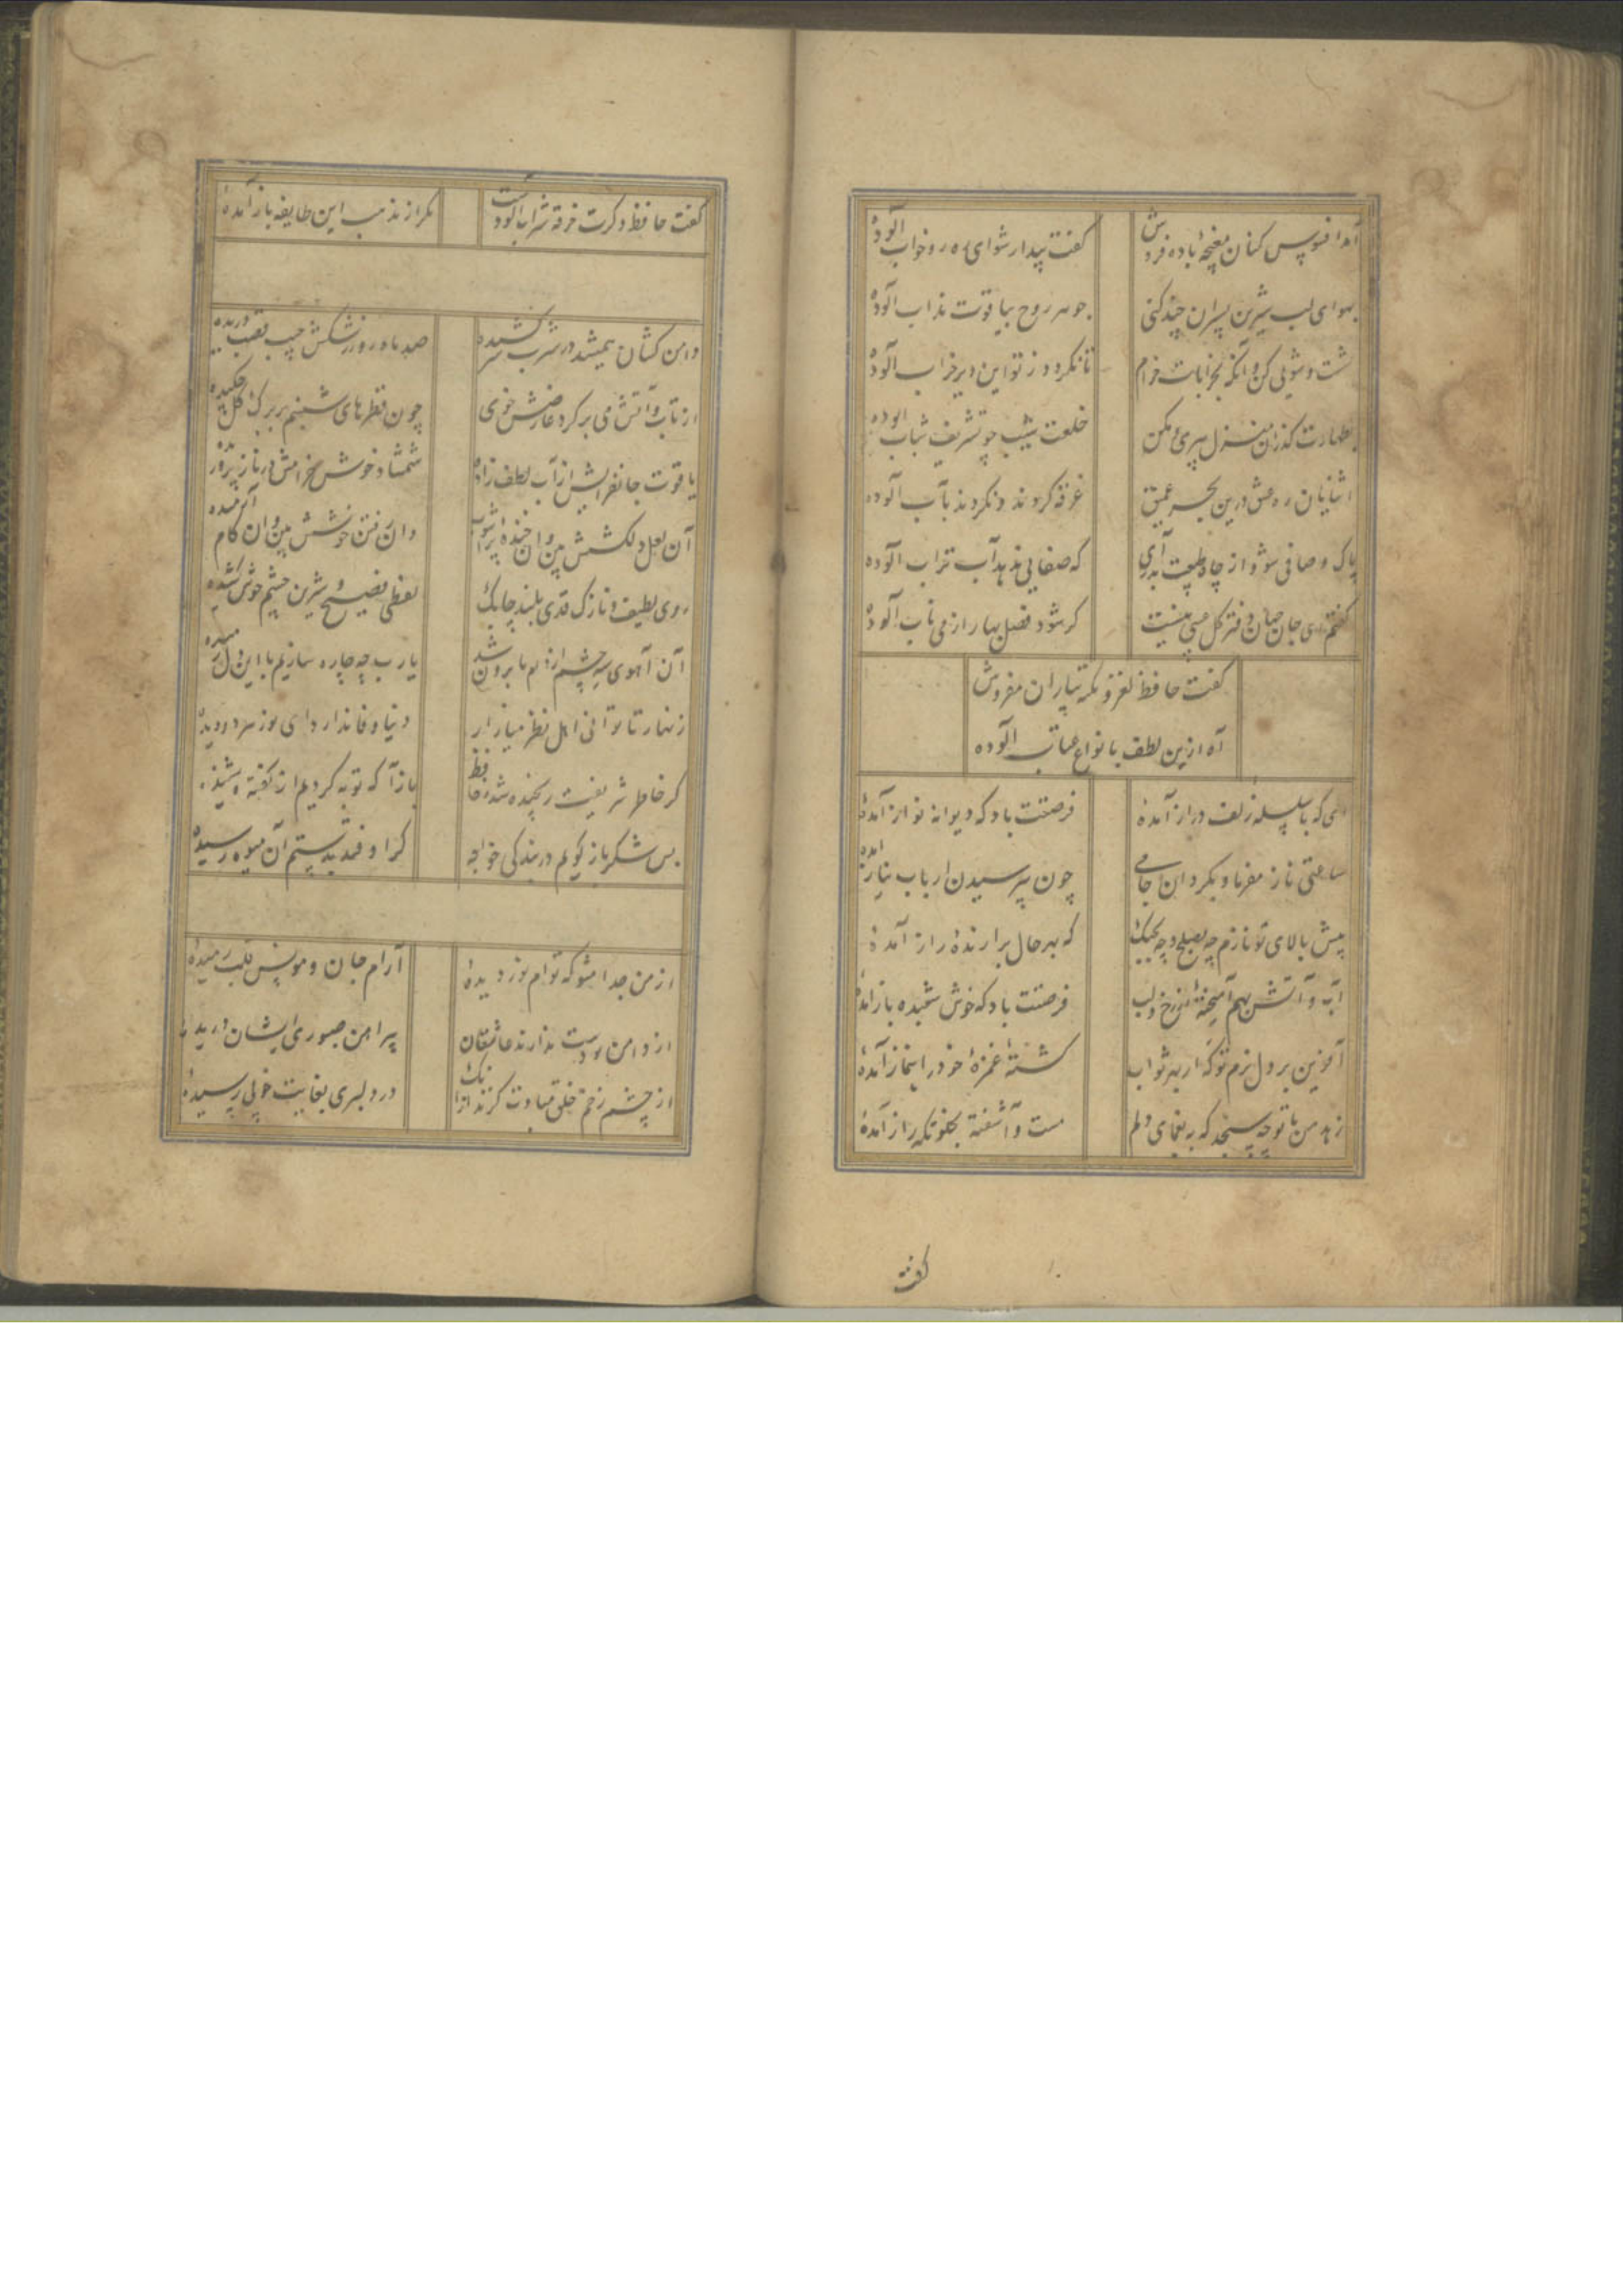 آمد افسوس کنان مغبچهٔ باده فروش کفت بیدار شو ای ره رو خواب آلوده
بهوای لب شیرین پسران چند کنی جوهر روح بیاقوت مذاب آلوده
شست و شویی کن و آنکه بخرابات خرام تا نکردد ز تو این دیر خراب آلوده
بطهارت کذران منزل پیری و مکن خلعت شیب چو تشریف شباب آلوده
آشنایان ره عشق درین بحر عمیق غرقه کردند و نکردند بآب آلوده
پاک و صافی شو و از چاه طبیعت بدر آی که صفایی ندهد آب تراب آلوده
کفتم ای جان جهان دفتر کل عیبی نیست کر شود فصل بهار از می ناب آلوده
کفت حافظ لغز و نکته بیاران مفروش
آه ازین لطف بانواع عتاب آلوده
ای که با سلسله زلف دراز آمدهٔ فرصتت باد که دیوانه نواز آمدهٔ
ساعتی ناز مفرما و بکردان جامی چون بپرسیدن ارباب نیاز آمده
پیش بالای تو نازم چه بصلح و چه بجنک که بهر حال برازندهٔ راز آمدهٔ
آب و آتش بهم آمیختهٔ از رخ و لب فرصتت باد که خوش شعبده باز آمدهٔ
آفرین بر دل نرم تو که از بهر ثواب کشتهٔ غمزهٔ خود را بنماز آمدهٔ
زهد من با تو چه سنجد که به یغمای دلم مست و آشفته بخلوتکه راز آمدهٔ
کفت
کفت حافظ دکرت خرقه شراب آلودست مکر از مذهب این طایفه باز آمدهٔ
دامن کشان همیشد در شرب زر کشیده صد ماه رو ز رشکش جیب قصب دریده
از تاب آتش می بر کرد عارضش خوی چون قطرهای شبنم بر برک کل چکیده
یاقوت جانفزایش از آب لطف زاده شمشاد خوش خرامش در ناز پروریده
آن لعل دلکشش بین وان خنده پر آشوب وان رفتن خوشش بین وان کام آرمیده
روی لطیف و نازک قدی بلند چابک لفظی فصیح شیرین چشم خوش کشیده
آن آهوی سیه چشم از دام ما برون شد یا رب چه چاره سازیم با این دل رمیده
زنهار تا توانی اهل نظر میازار دنیا وفا ندارد ای نور هر دو دیده
کر خاطر شریفت رنجیده شد ز حافظ بازآ که توبه کردیم از کفته و شنیده
بس شکر باز کویم در بندکی خواجه کر اوفتد بدستم آن میوه رسیده
از من جدا مشو که توام نور دیدهٔ آرام جان و مونس قلب رمیدهٔ
از دامن تو دست ندارند عاشقان پیراهن صبوری ایشان دریدهٔ
از چشم زخم خلق مبادت کزند ازانک در دلبری بغایت خوبی رسیدهٔ